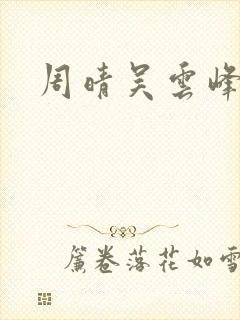 周晴吴雲峰
簾卷落花如雪